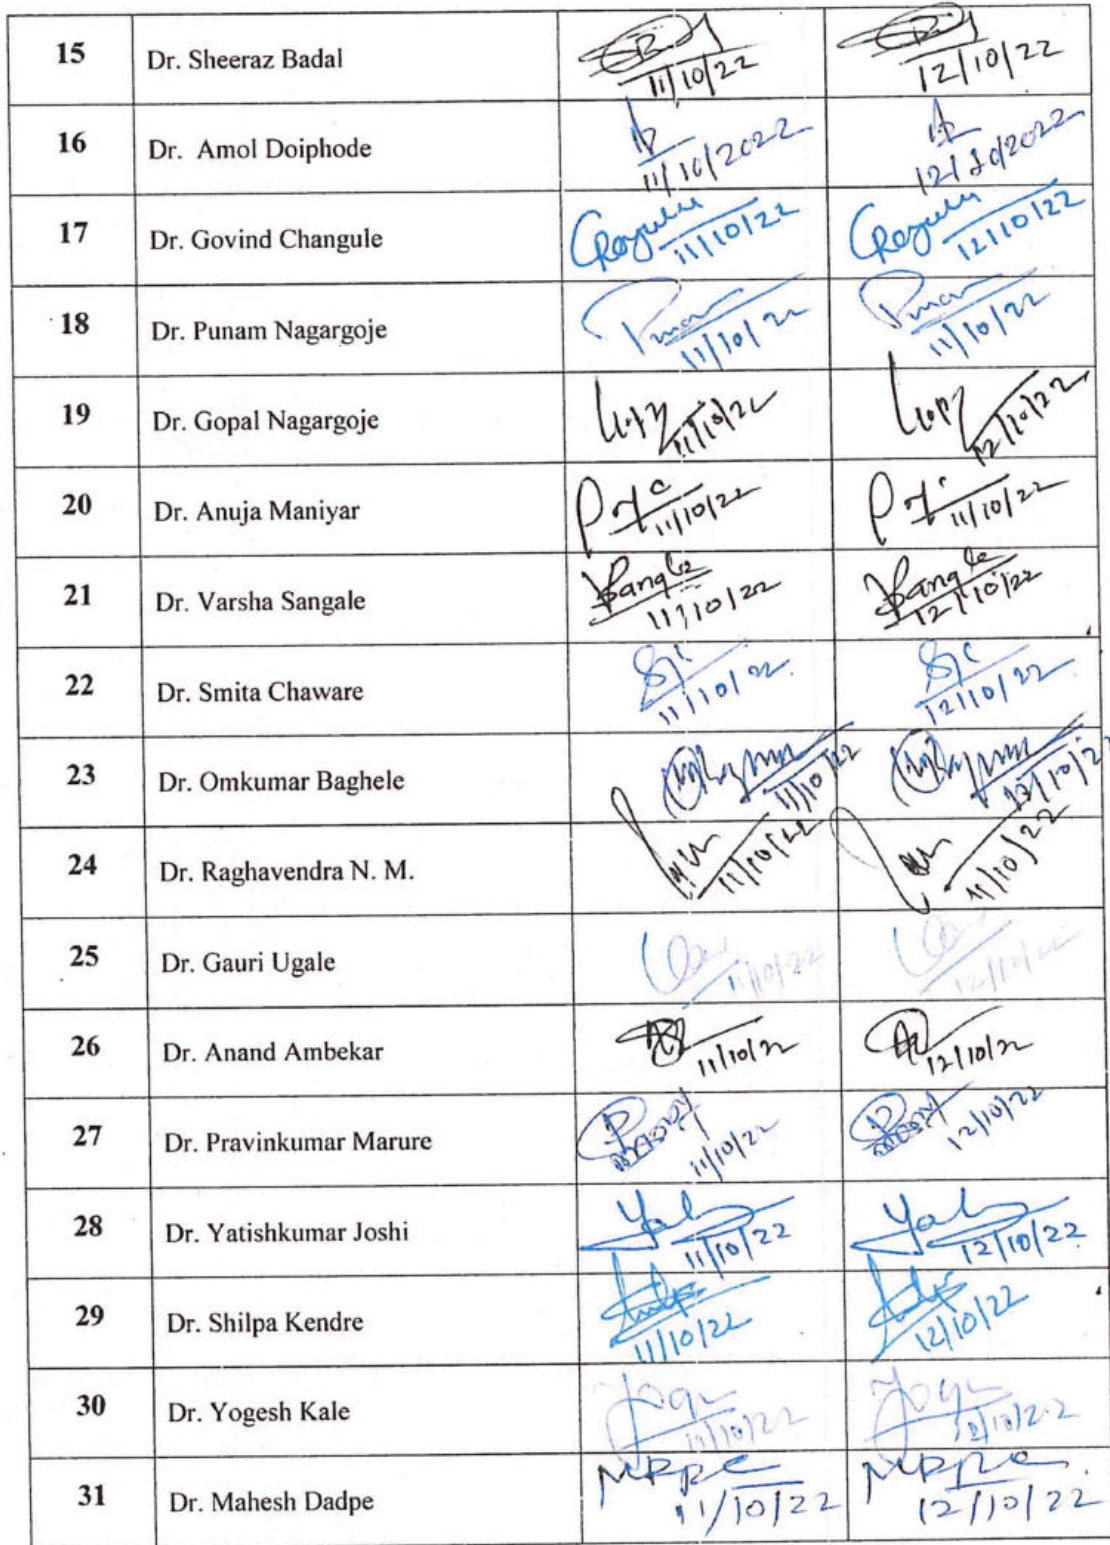 15 Dr. Sheeraz Badal 11/10/22 12/10/22
16 Dr. Amol Doiphode 11/10/2022 12/10/2022
17 Dr. Govind Changule 11/10/22 12/10/22
18 Dr. Punam Nagargoje 11/10/22 11/10/22
19 Dr. Gopal Nagargoje 11/10/22 12/10/22
20 Dr. Anuja Maniyar 11/10/22 11/10/22
21 Dr. Varsha Sangale 11/10/22 12/10/22
22 Dr. Smita Chaware 11/10/22. 12/10/22
23 Dr. Omkumar Baghele 11/10/22 12/10/22
24 Dr. Raghavendra N. M. 11/10/22 11/10/22
25 Dr. Gauri Ugale 11/10/22 12/10/22
26 Dr. Anand Ambekar 11/10/22 12/10/22
27 Dr. Pravinkumar Marure 11/10/22 12/10/22
28 Dr. Yatishkumar Joshi 11/10/22 12/10/22
29 Dr. Shilpa Kendre 11/10/22 12/10/22
30 Dr. Yogesh Kale 11/10/22 12/10/22
31 Dr. Mahesh Dadpe 11/10/22 12/10/22